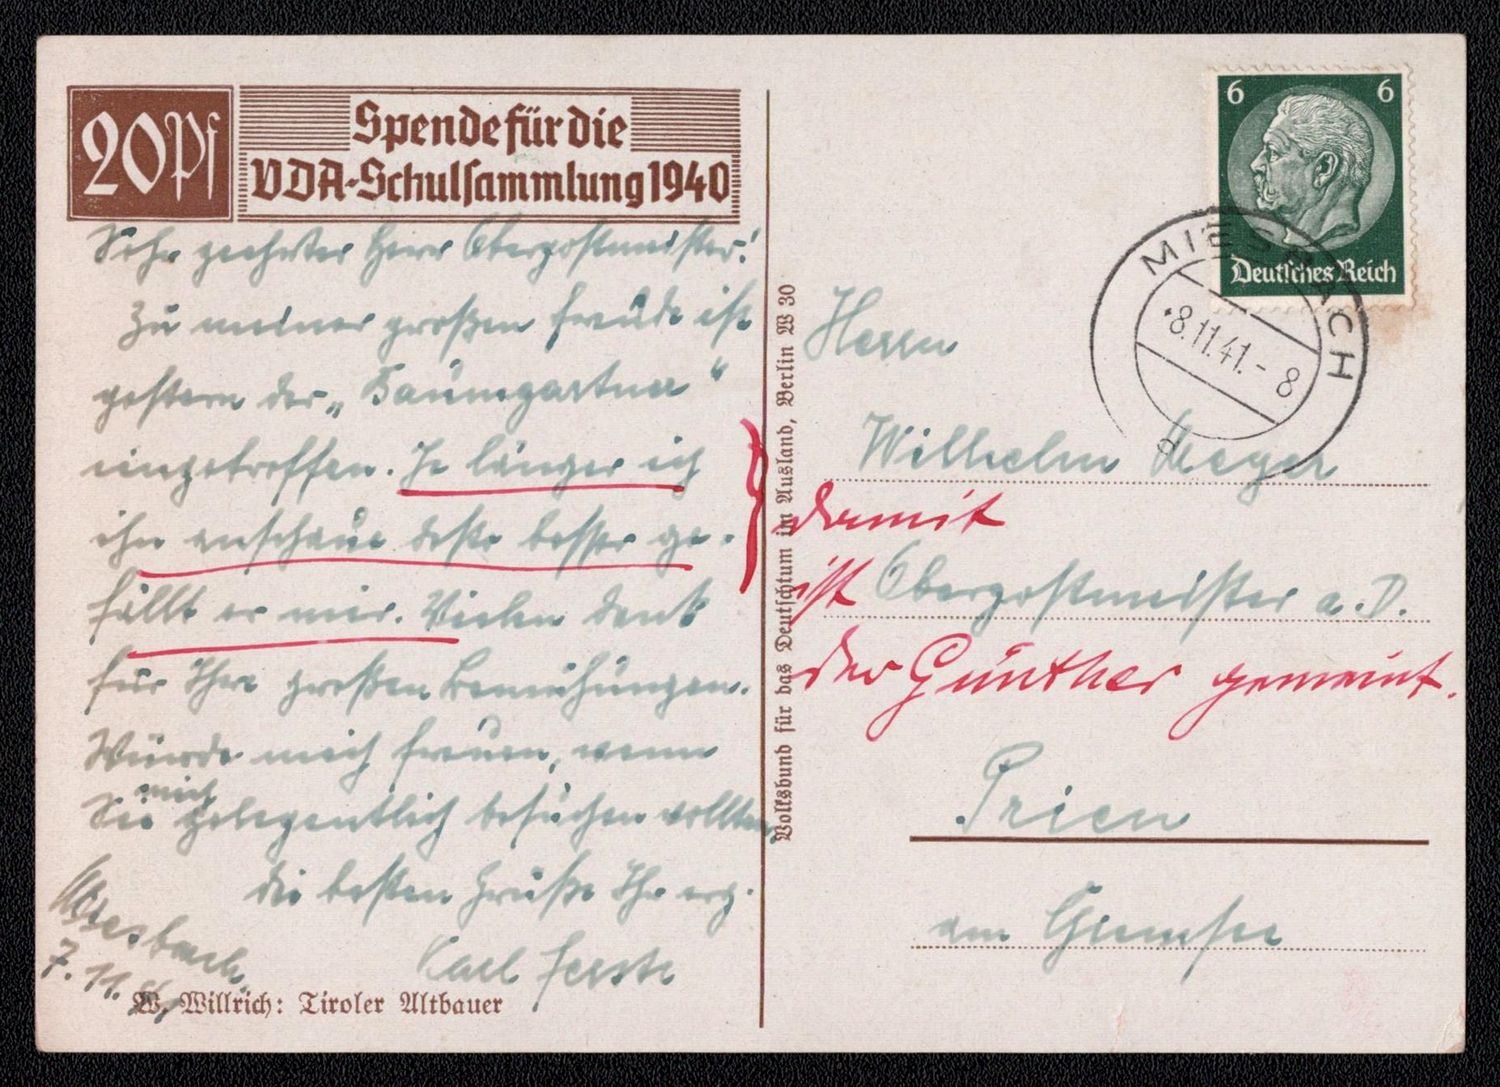 20 Pf
Spende für die
VDA-Schulsammlung 1940
Sehr geehrter Herr Oberpostmeister!
Zu meiner großen Freude ist
gestern der „Baumgartner“
eingetroffen. Je länger ich
ihn anschaue desto besser ge-
fällt er mir. Vielen Dank
für Ihre großen Bemühungen.
Würde mich freuen, wenn
Sie mich gelegentlich besuchen wollten
die besten Grüße Ihr erg.
Karl
Miesbach
7.11.41
W. Willrich: Tiroler Altbauer
Volksbund für das Deutschtum im Ausland, Berlin W 30
6 6
Deutsches Reich
MIESBACH
8.11.41.-8
a
Herrn
Wilhelm Meyer
damit
ist
Oberpostmeister a.D.
der Günther gemeint.
Prien
am Chiemsee